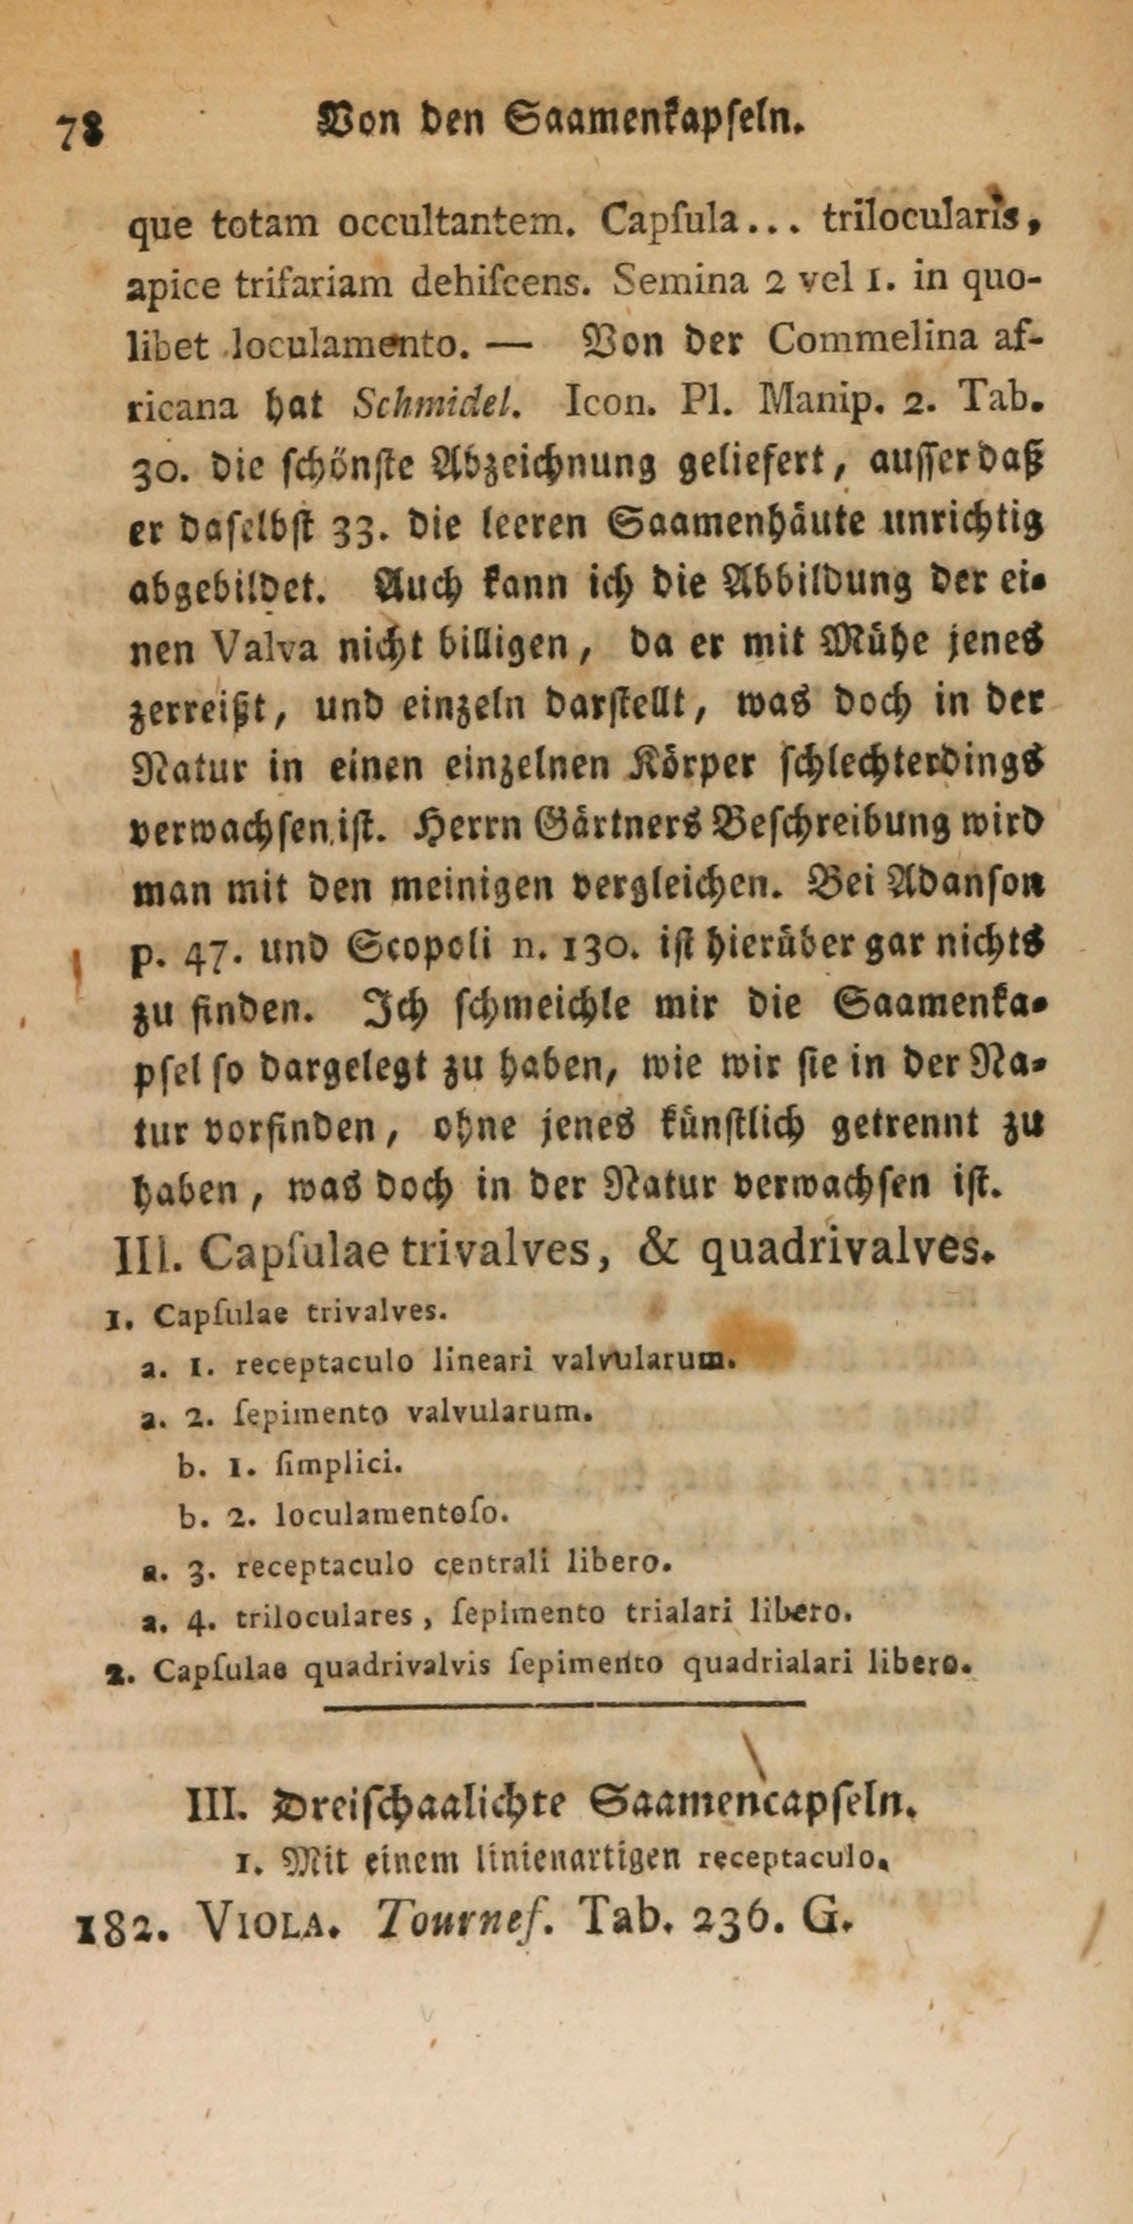 78 Von den Saamenkapseln.
que totam occultantem. Capſula... trilocularis,
apice trifariam dehiſcens. Semina 2 vel 1. in quo-
libet loculamento. — Von der Commelina af-
ricana hat Schmidel. Icon. Pl. Manip. 2. Tab.
30. die ſchönſte Abzeichnung geliefert, auſſerdaß
er daſelbſt 33. die leeren Saamenhäute unrichtig
abgebildet. Auch kann ich die Abbildung der ei-
nen Valva nicht billigen, da er mit Mühe jenes
zerreißt, und einzeln darſtellt, was doch in der
Natur in einen einzelnen Körper ſchlechterdings
verwachſen iſt. Herrn Gärtners Beſchreibung wird
man mit den meinigen vergleichen. Bei Adanſon
p. 47. und Scopoli n. 130. iſt hierüber gar nichts
zu finden. Ich ſchmeichle mir die Saamenka-
pſel ſo dargelegt zu haben, wie wir ſie in der Na-
tur vorfinden, ohne jenes künſtlich getrennt zu
haben, was doch in der Natur verwachſen iſt.
III. Capſulae trivalves, & quadrivalves.
1. Capſulae trivalves.
a. 1. receptaculo lineari valvularum.
a. 2. ſepimento valvularum.
b. 1. ſimplici.
b. 2. loculamentoſo.
a. 3. receptaculo centrali libero.
a. 4. triloculares, ſepimento trialari libero.
2. Capſulae quadrivalvis ſepimento quadrialari libero.
III. Dreiſchaalichte Saamencapſeln.
1. Mit einem linienartigen receptaculo.
182. VIOLA. Tournef. Tab. 236. G.